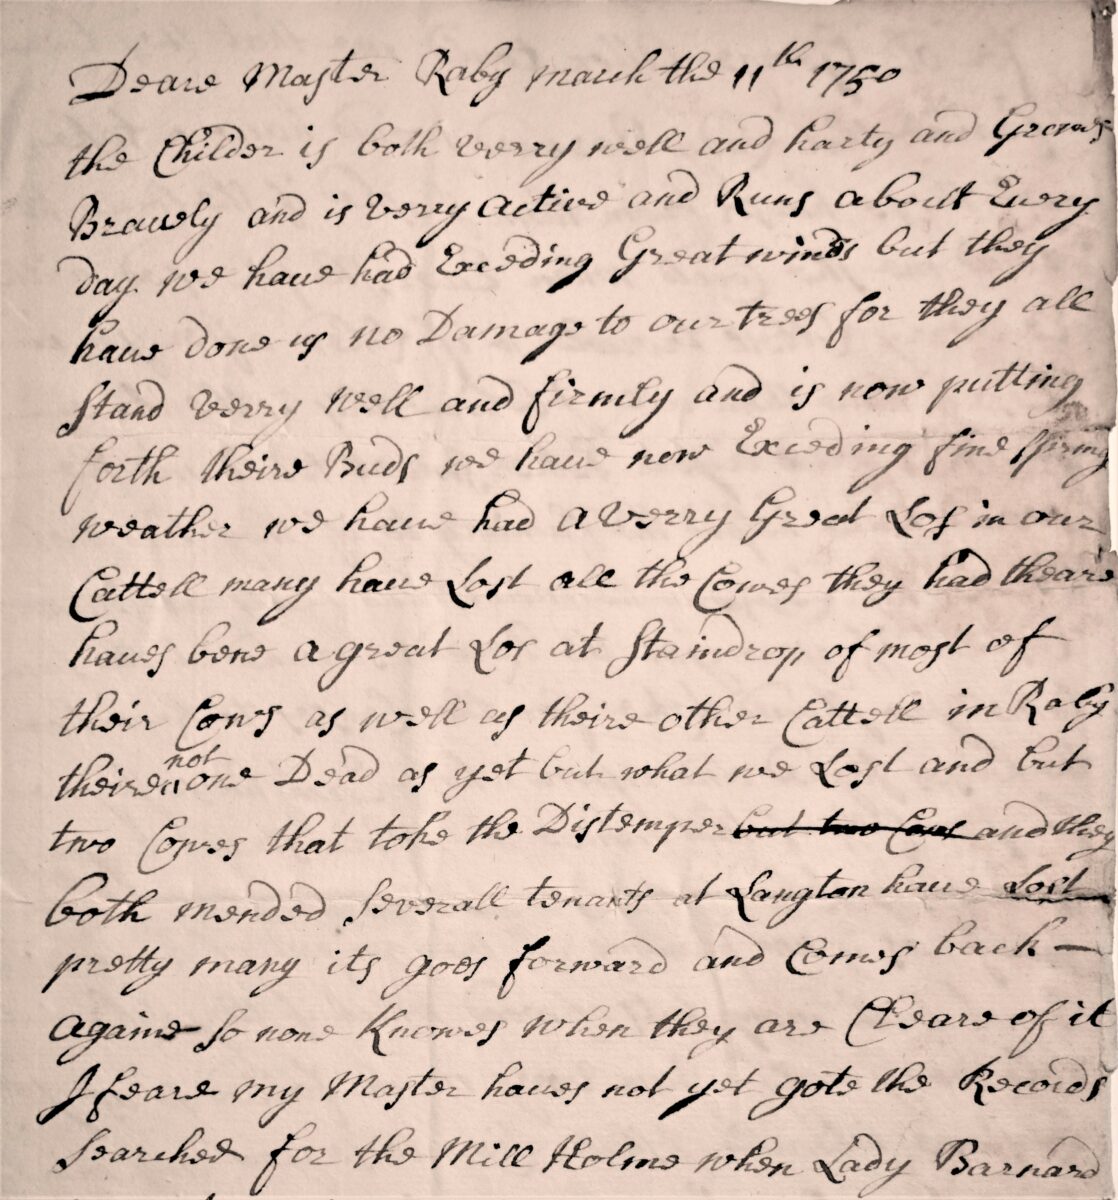 Deare Master Raby march the 11th 1750
the Childer is both verry well and harty and Grows
Bravely and is verry active and Runs about Every
day. we have had Exceding Great winds but they
have done us no Damage to our trees for they all
Stand verry well and firmly and is now putting
forth theire Buds we have now Exceding fine spring
weather we have had a verry Great Los in our
Cattell many have Lost all the Cowes they had theare
haves bene a great Los at Staindrop of most of
their Cows as well as theire other Cattell in Raby
theire not one Dead as yet but what we Lost and but
two Cowes that toke the Distemper but two Cows and they
both mended Severall tenants at Langton have Lost
pretty many its goes forward and Comes back —
againe so none Knowes when they are Cleare of it
I feare my Master haves not yet gote the Records
Searched for the Mill Holme when Lady Barnard